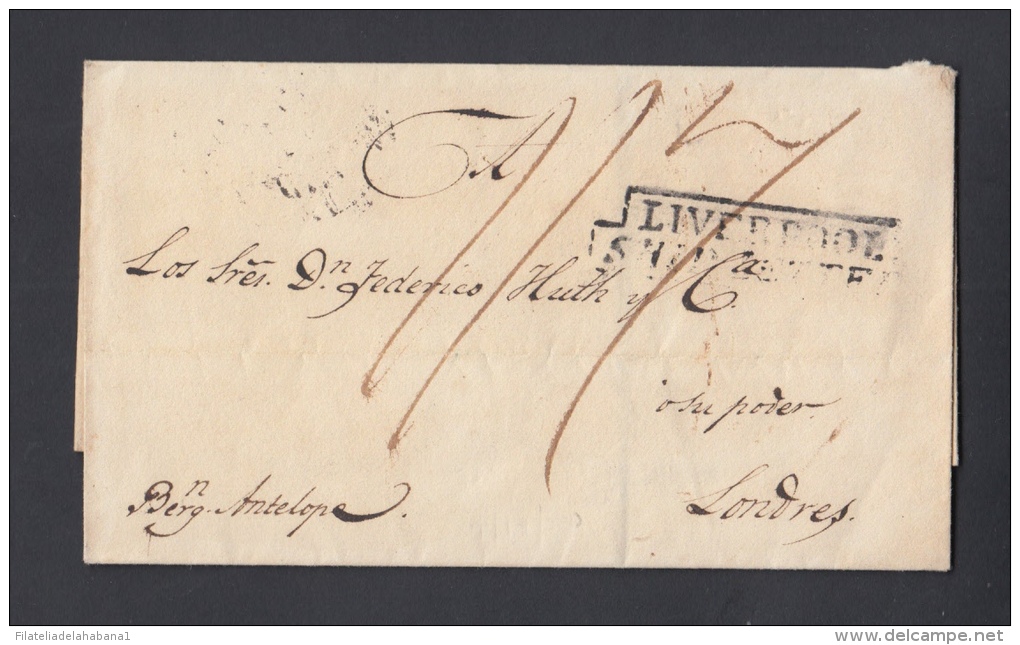 A
LIVERPOOL
SHIP LETTER
Los Sres. Dn. Federico Huth y Ca.
o su poder
Bergn. Antelope.
Londres.
Filateliadelahabana1
www.delcampe.net